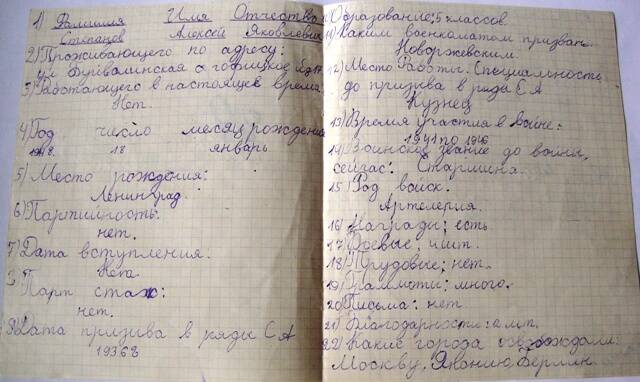 1) Фамилия Имя Отчество
Степанов Алексей Яковлевич
2) Проживающего по адресу:
ул
3) Работающего в настоящее время
Нет.
4) Год число месяц рождения
18 январь
5) Место рождения:
Ленинград
6) Партийность:
нет.
7) Дата вступления.
Нета
8) Парт стаж:
нет.
9) Дата призыва в ряды СА
1936г
Образование; 5 классов
Каким военкоматом призван.
Новоржевским.
12) Место Работы. Специальность
до призыва в ряды СА
Кузнец
13) Время участия в войне:
1941 по 1946
14) Воинское звание до войны,
сейчас: Старшина.
15) Род войск.
Артелерия.
16) Награды; есть
17) Боевые; 4 шт.
18) Трудовые; нет.
19) Граммоты: много.
20) Письма: нет
21) Благодарности: 2 шт.
22) Какие города освобождали:
Москву, Японию, Берлин.